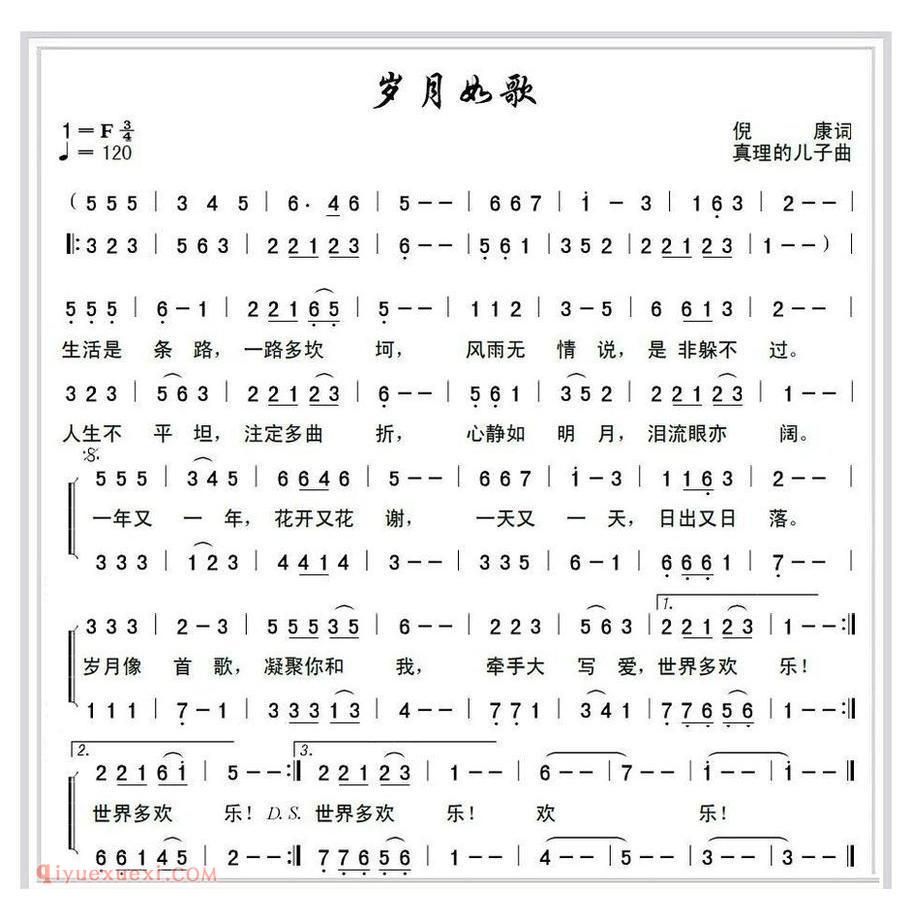 岁月如歌
1=F 3/4
倪 康词
♩= 120
真理的儿子曲
( 5 5 5 | 3 4 5 | 6· 4 6 | 5 – – | 6 6 7 | i – 3 | 1 6 3 | 2 – – |
‖: 3 2 3 | 5 6 3 | 2 2 1 2 3 | 6 – – | 5 6 1 | 3 5 2 | 2 2 1 2 3 | 1 – – ) |
5 5 5 | 6 – 1 | 2 2 1 6 5 | 5 – – | 1 1 2 | 3 – 5 | 6 6 1 3 | 2 – – |
生活是 条 路， 一路多坎 坷， 风雨无 情 说， 是 非躲不 过。
3 2 3 | 5 6 3 | 2 2 1 2 3 | 6 – – | 5 6 1 | 3 5 2 | 2 2 1 2 3 | 1 – – |
人生不 平 坦， 注定多曲 折， 心静如 明 月， 泪流眼亦 阔。
𝄋
5 5 5 | 3 4 5 | 6 6 4 6 | 5 – – | 6 6 7 | i – 3 | 1 1 6 3 | 2 – – |
一年又 一 年， 花开又花 谢， 一天又 一 天， 日出又日 落。
3 3 3 | 1 2 3 | 4 4 1 4 | 3 – – | 3 3 5 | 6 – 1 | 6 6 6 1 | 7 – – |
1.
3 3 3 | 2 – 3 | 5 5 5 3 5 | 6 – – | 2 2 3 | 5 6 3 | 2 2 1 2 3 | 1 – – :‖
岁月像 首 歌， 凝聚你和 我， 牵手大 写 爱， 世界多欢 乐！
1 1 1 | 7 – 1 | 3 3 3 1 3 | 4 – – | 7 7 1 | 3 4 1 | 7 7 6 5 6 | 1 – – :‖
2. 3.
2 2 1 6 i | 5 – – :‖ 2 2 1 2 3 | 1 – – | 6 – – | 7 – – | i – – | i – – ‖
世界多欢 乐！ D.S. 世界多欢 乐！ 欢 乐！
6 6 1 4 5 | 2 – – :‖ 7 7 6 5 6 | 1 – – | 4 – – | 5 – – | 3 – – | 3 – – ‖
qiyuexuexi.COM